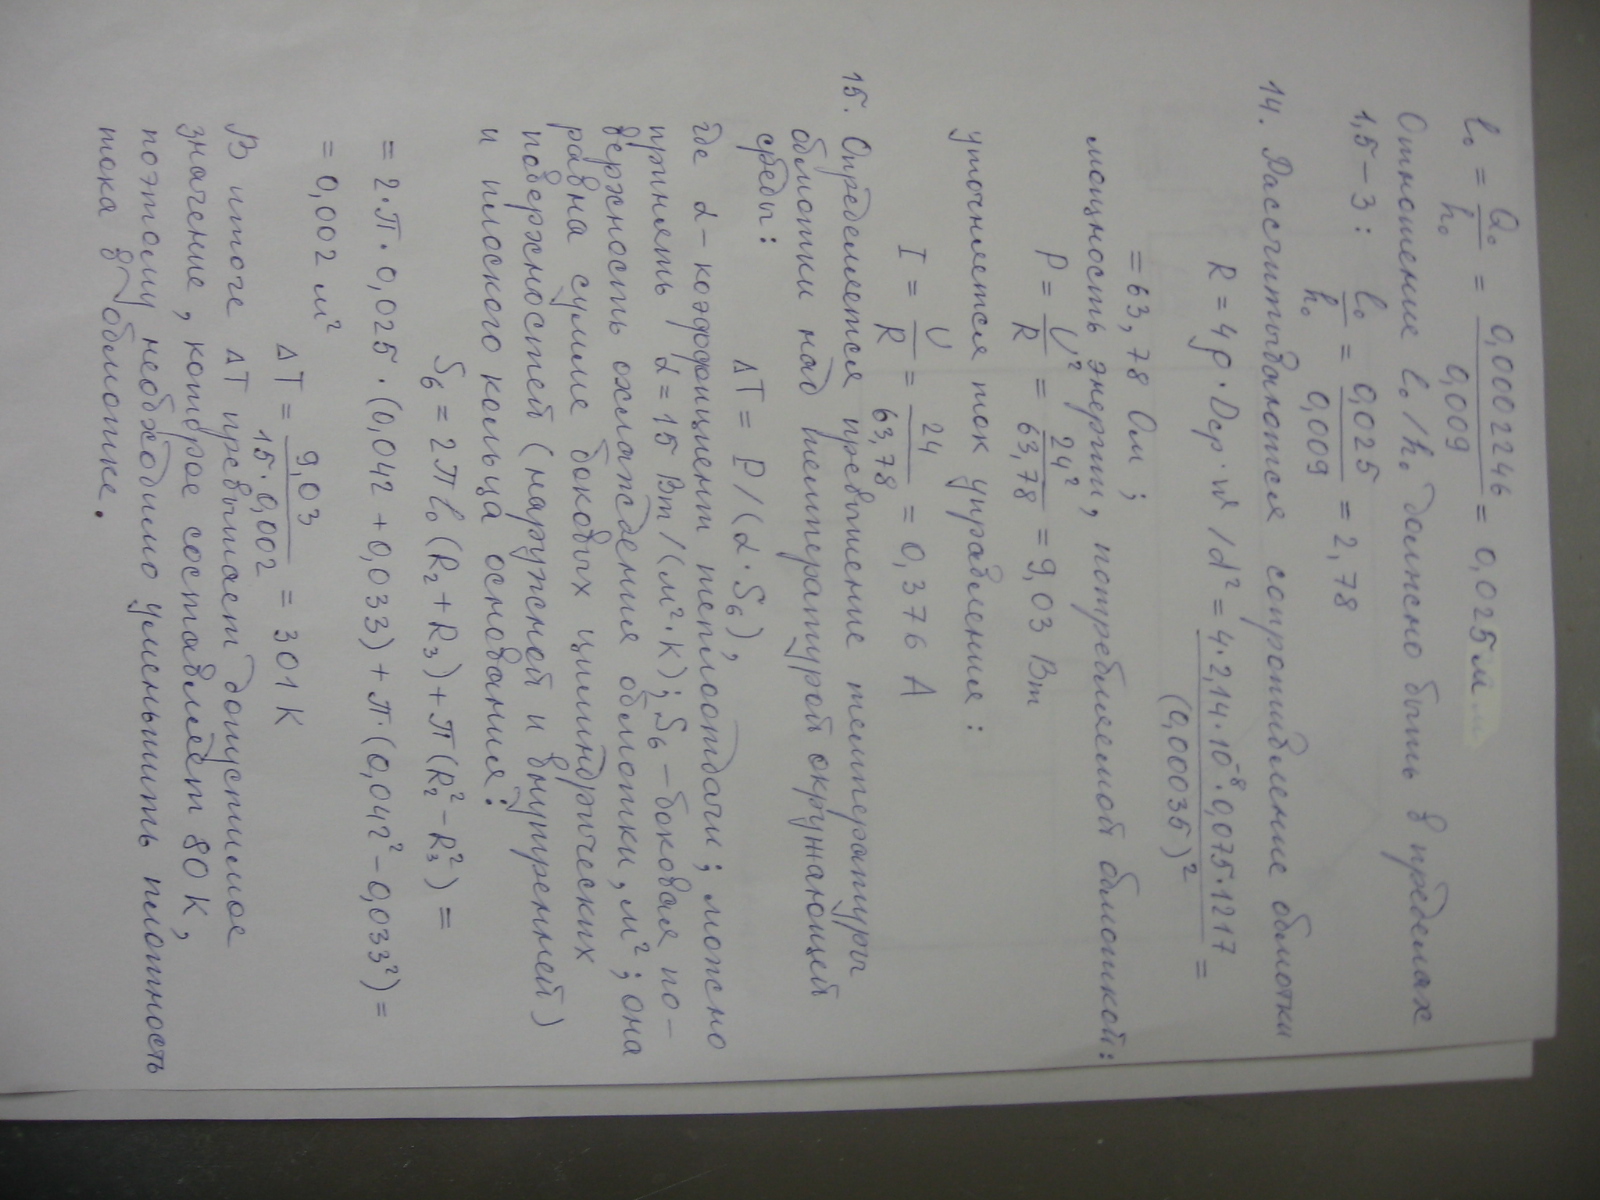 l₀ = Q₀/h₀ = 0,0002246/0,009 = 0,025 м
Отношение l₀/h₀ должно быть в пределах
1,5 – 3 : l₀/h₀ = 0,025/0,009 = 2,78
14. Рассчитываются сопротивление обмотки
R = 4ρ·Dср·w/d² = 4·2,14·10⁻⁸·0,075·1217/(0,00035)² =
= 63,78 Ом ;
мощность энергии, потребляемой обмоткой:
P = U²/R = 24²/63,78 = 9,03 Вт
уточняется ток управления :
I = U/R = 24/63,78 = 0,376 А
15. Определяется превышение температуры
обмотки над температурой окружающей
среды :
ΔT = P/(α·Sб),
где α – коэффициент теплоотдачи ; можно
принять α = 15 Вт/(м²·К) ; Sб – боковая по-
верхность охлаждения обмотки, м² ; она
равна сумме боковых цилиндрических
поверхностей (наружной и внутренней)
и плоского кольца основания :
Sб = 2πl₀(R₂ + R₃) + π(R₂² – R₃²) =
= 2·π·0,025·(0,042 + 0,033) + π(0,042² – 0,033²) =
= 0,002 м²
ΔT = 9,03/15·0,002 = 301 К
В итоге ΔT превышает допустимое
значение, которое составляет 80 К,
поэтому необходимо уменьшить плотность
тока в обмотке.